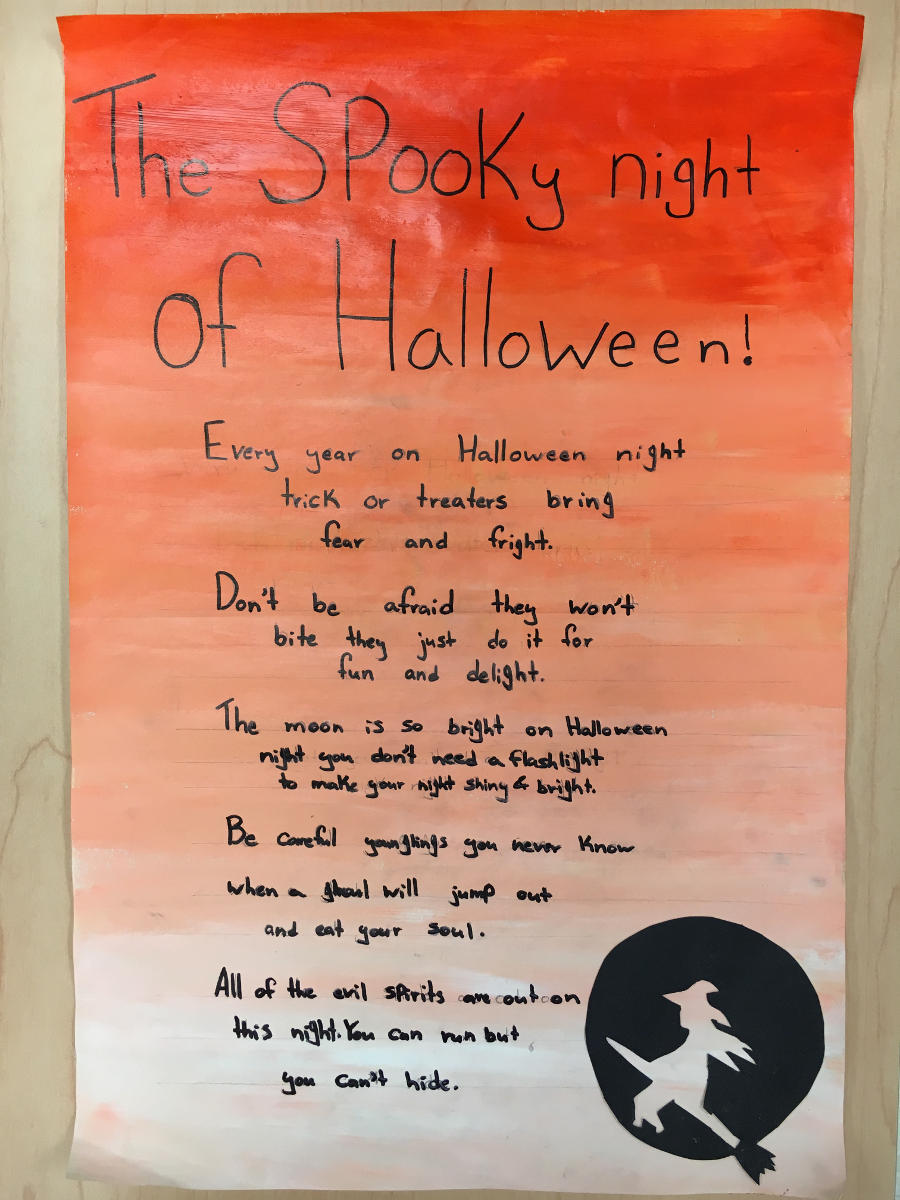 The SPooKy night
of Halloween!
Every year on Halloween night
trick or treaters bring
fear and fright.
Don't be afraid they won't
bite they just do it for
fun and delight.
The moon is so bright on Halloween
night you don't need a flashlight
to make your night shiny & bright.
Be careful younglings you never know
when a ghoul will jump out
and eat your soul.
All of the evil spirits are out on
this night. You can run but
you can't hide.